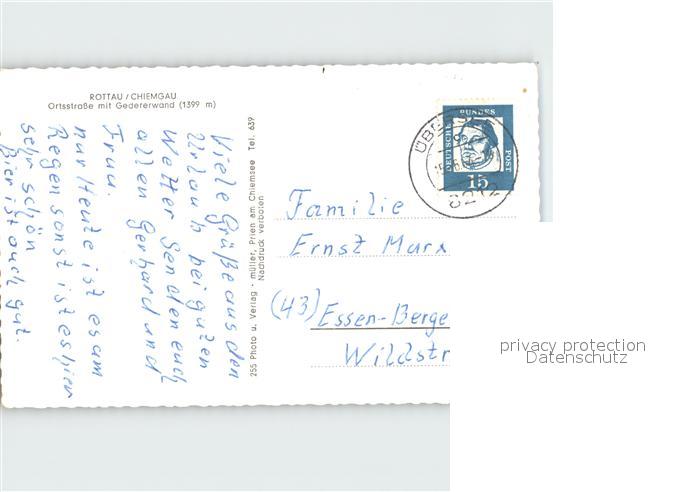 ROTTAU / CHIEMGAU
Ortsstraße mit Gedererwand (1399 m)
Viele Grüße aus den
Urlaub bei guten
Wetter senden euch
allen Gerhard und
Frau.
nur Heute ist es am
Regen sonst ist es hier
sehr schön
Bier ist auch gut.
255 Photo u. Verlag · müller, Prien am Chiemsee Tel. 639
Nachdruck verboten
DEUTSCHE BUNDESPOST
15
ÜBERSEE
8212
Familie
Ernst Marx
(43) Essen-Berge
Wildstr
privacy protection
Datenschutz